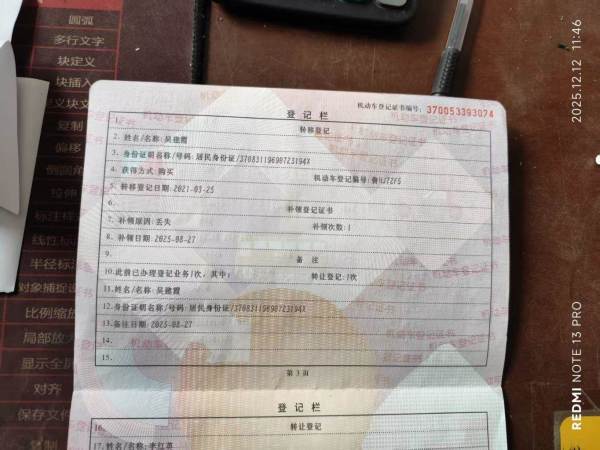 圆弧
多行文字
块定义
块插入
复制
偏移
比例缩放
显示全屏
对齐
保存文件
登记栏
机动车登记证书编号: 370053393074
1. 转移登记
2. 姓名/名称: 吴建霞
3. 身份证明名称/号码: 居民身份证/37083119690723194X
4. 获得方式: 购买 机动车登记编号:
5. 转移登记日期: 2021-03-25
6. 补领登记证书
7. 补领原因: 丢失 补领次数: 1
8. 补领日期: 2025-08-27
9. 备 注
10. 此前已办理登记业务1次, 其中: 转让登记: 1次
11. 姓名/名称: 吴建霞
12. 身份证明名称/号码: 居民身份证/37083119690723194X
13. 备注日期: 2025-08-27
14.
15.
第3页
登记栏
16. 转让登记
17. 姓名/名称: 李红英
REDMI NOTE 13 PRO
2025.12.12 11:46